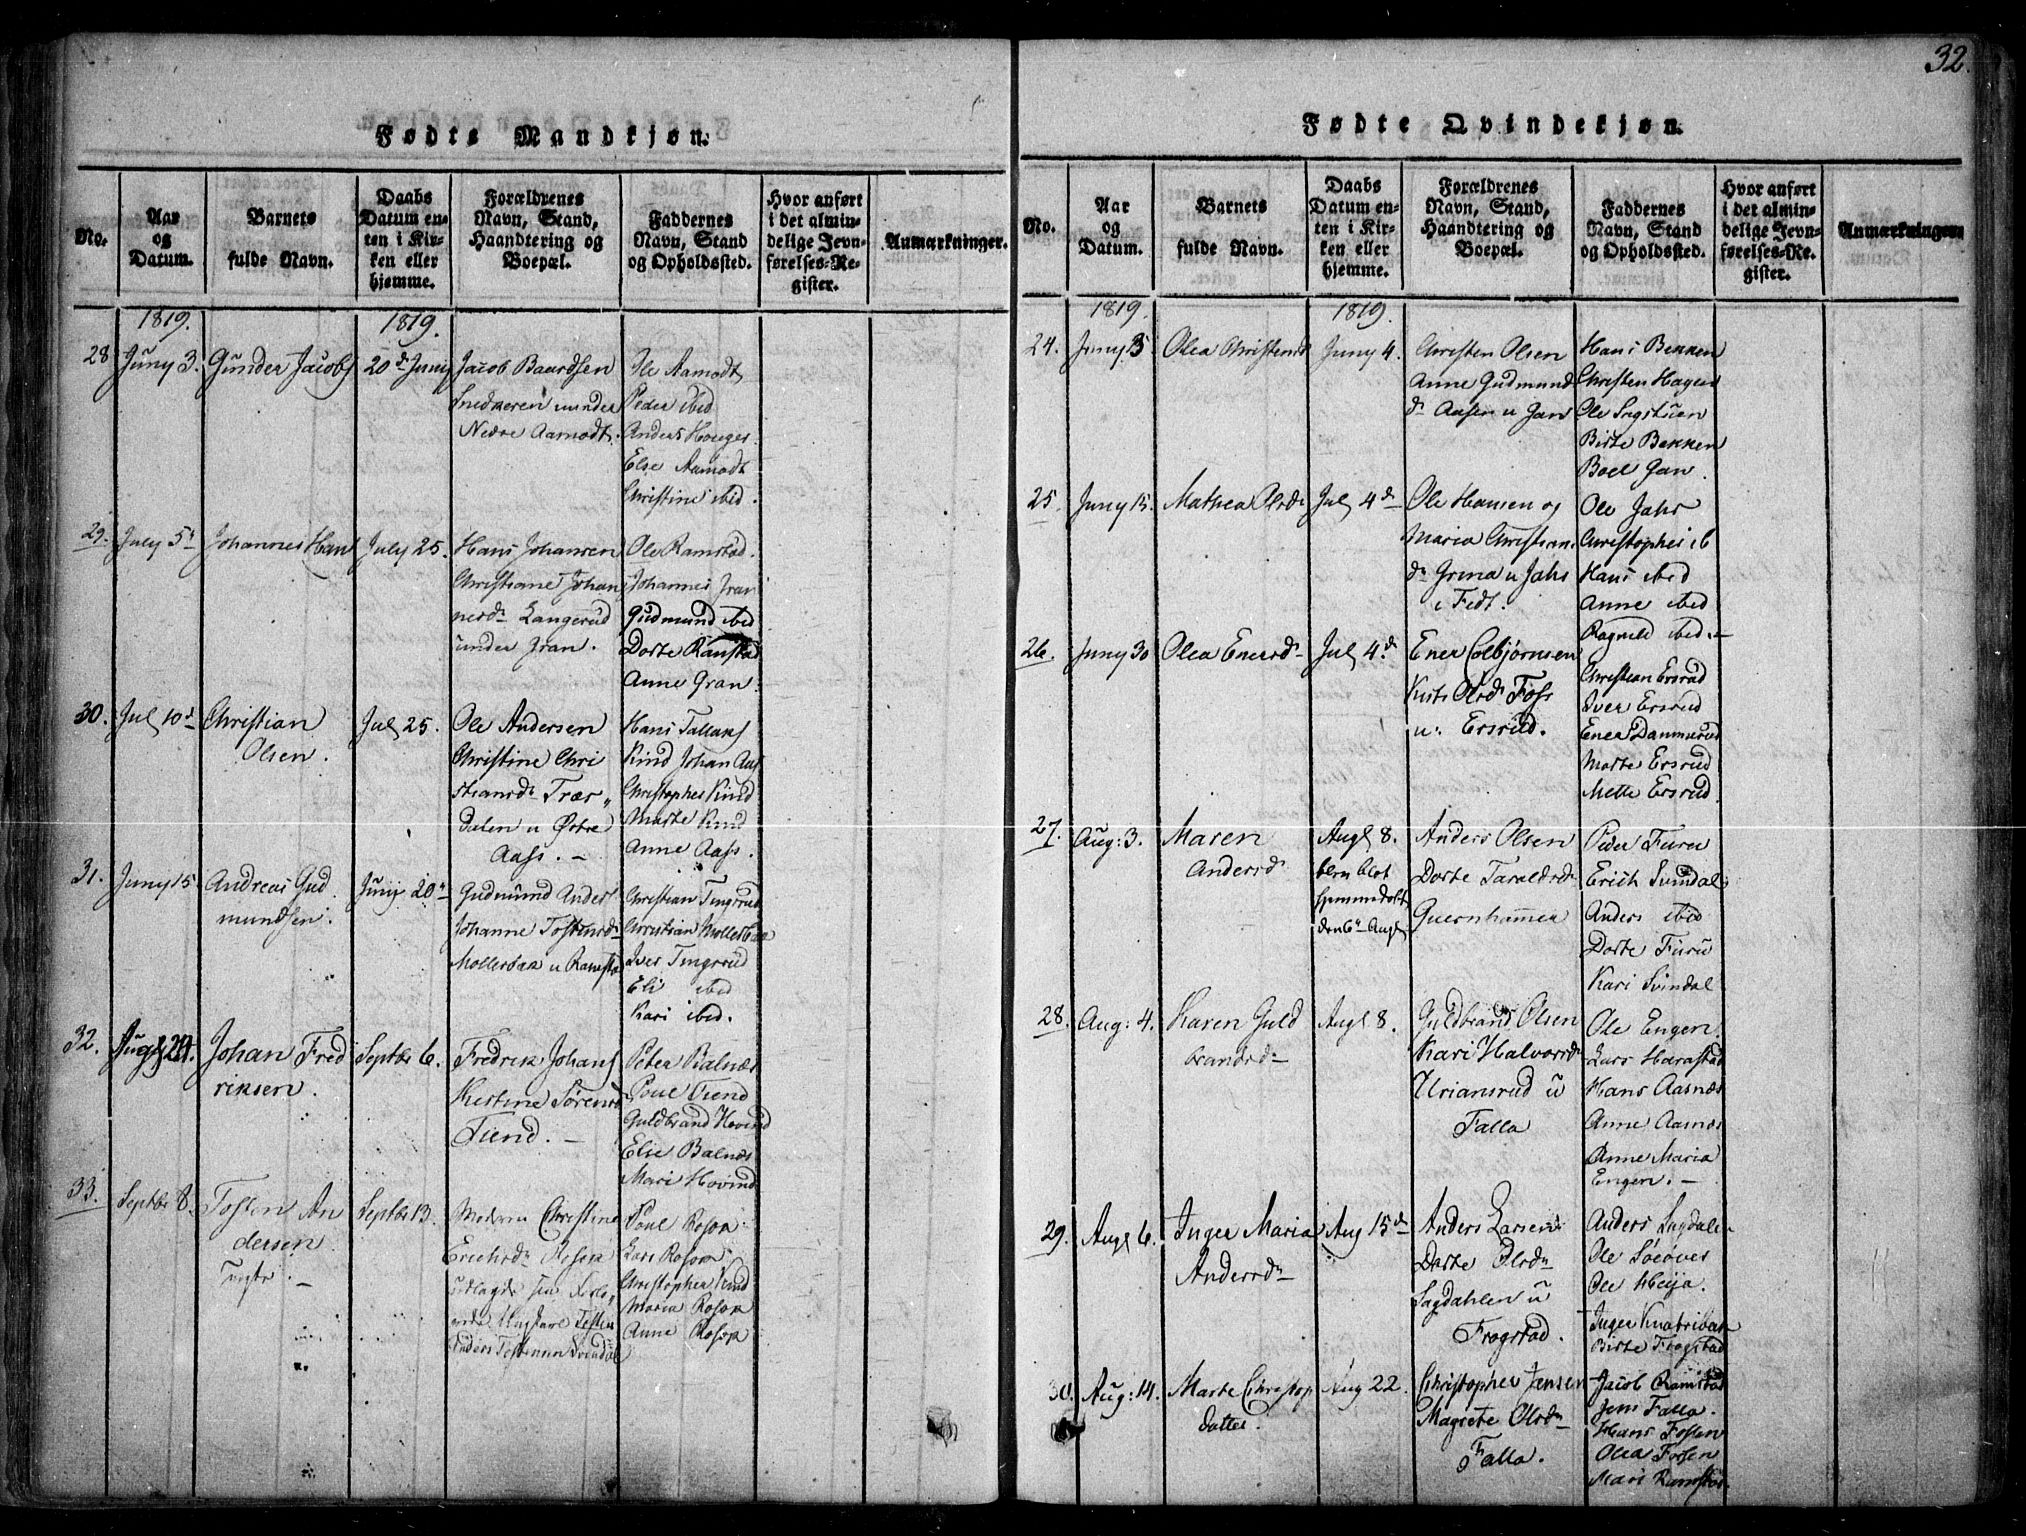 32.
Fødte Mandkjøn.
No.
Aar
og
Datum.
Barnets
fulde Navn.
Daabs
Datum en-
ten i Kir-
ken eller
hjemme.
Forældrenes
Navn, Stand,
Haandtering og
Boepæl.
Faddernes
Navn, Stand
og Opholdssted.
Hvor anført
i det almin-
delige Jevn-
førelses-Re-
gister.
Anmærkninger.
1819.
1819.
28
Juny 3.
Gunder Jacobs
20d Juny
Jacob Baardsen
Snedkeren under
Nedre Aamodt.
Ole Aamodt
Peder ibid
Anders Houger
Else Aamodt
Christine ibid.
29.
July 5d
Johannes Hans
July 25.
Hans Johansen
Christiane Johan
nesd. Langerud
under Gran.
Ole Ramstad
Johannes Gran
Gudmund ibid
Dorte Ramstad
Anne Gran.
30.
Jul 10d
Christian
Olsen.
Jul 25.
Ole Andersen
Christine Chri
stiansd. Trær„
dalen u Østre
Aass. –
Hans Tallaks
Kind Johan Aas
Christopher Kind
Marte Kind
Anne Aass.
31.
Juny 15
Andreas Gud
mundsen.
Juny 20d
Gudmund Anders
Johanne Tostensd.
Mollerbak u Ramsta
Christian Tingsrud
Christian Mollerbak
Iver Tingsrud
Eli ibid
Kari ibid.
32.
Augs 24.
Johan Fred
riksen.
Septbr 6.
Fredrik Johans
Kirstine Sørensd
Tiend. –
Peter Balnæs
Poul Tiend
Guldbrand Hovind
Else Balnæs
Mari Hovind
33.
Septbr 8.
Tosten An
dersen
uægte. –
Septbr 13.
Moderen Christine
Erichsd. Rosop
udlagde sin Forlo„
Anders Tostensen Svindal
Poul Rosop
Lars Rosop
Christopher Kind
Maria Rosop
Anne Rosop
Fødte Qvindekjøn.
No.
Aar
og
Datum.
Barnets
fulde Navn.
Daabs
Datum en-
ten i Kir-
ken eller
hjemme.
Forældrenes
Navn, Stand,
Haandtering og
Boepæl.
Faddernes
Navn, Stand
og Opholdssted.
Hvor anført
i det almin-
delige Jevn-
førelses-Re-
gister.
Anmærkninger.
1819.
1819.
24.
Juny 3
Olea Christensd
Juny 4.
Christen Olsen
Anne Gudmund
d. Aasen u Gan
Hans Bekken
Christen Hagen
Ole Sagstuen
Birte Bekken
Boel Gan.
25.
Juny 15.
Mathea Olsd.
Jul 4d
Ole Hansen og
Maria Christian
d. Grina u Jahr
i Fedt.
Ole Jahr
Christopher ib
Hans ibid
Anne ibid
Ragnild ibid. –
26.
Juny 30
Olea Enersd.
Jul 4d
Ener Colbjørnsen
Kirsti Olsd. Foss
u: Ersrud.
Christian Ersrud
Iver Ersrud
Ener Dammerud
Marte Ersrud
Mette Ersrud.
27.
Aug: 3.
Maren
Andersd.
Augs 8.
blen blot
hjemmedøbt
den 6d Augs
Anders Olsen
Dorte Taraldsd.
Quernhammer
Peder Furu
Erich Svindal
Anders ibid
Dorte Furu
Kari Svindal
28.
Aug: 4.
Karen Guld
brandsd.
Augs 8.
Guldbrand Olsen
Kari Halvorsd.
Uriansrud u
Falla
Ole Engen
Lars Harastad
Hans Aasnæs
Anne Aasnæs
Anne Maria
Engen. –
29.
Augs 6.
Inger Maria
Andersd.
Aug 15d
Anders Larsen
Dorte Olsd.
Sagdahlen u
Frogstad.
Anders Sagdalen
Ole Heija.
Inger Knatribak
Birte Frogstad
30.
Aug: 14.
Marte Christop
datter.
Aug 22.
Christopher Jansen
Magrete Olsd.
Falla.
Jacob Ramstad
Jens Falla.
Hans Fossen
Olea Fossen
Mari Ramstad.